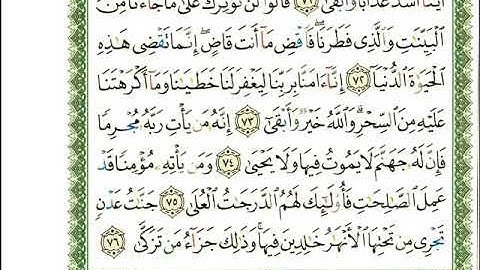 أَيُّنَآ أَشَدُّ عَذَابًا وَأَبْقَىٰ ۝٧١ قَالُوا۟ لَن نُّؤْثِرَكَ عَلَىٰ مَا جَآءَنَا مِنَ
ٱلْبَيِّنَٰتِ وَٱلَّذِى فَطَرَنَا ۖ فَٱقْضِ مَآ أَنتَ قَاضٍ ۖ إِنَّمَا تَقْضِى هَٰذِهِ
ٱلْحَيَوٰةَ ٱلدُّنْيَآ ۝٧٢ إِنَّآ ءَامَنَّا بِرَبِّنَا لِيَغْفِرَ لَنَا خَطَٰيَٰنَا وَمَآ أَكْرَهْتَنَا
عَلَيْهِ مِنَ ٱلسِّحْرِ ۗ وَٱللَّهُ خَيْرٌ وَأَبْقَىٰٓ ۝٧٣ إِنَّهُۥ مَن يَأْتِ رَبَّهُۥ مُجْرِمًا
فَإِنَّ لَهُۥ جَهَنَّمَ لَا يَمُوتُ فِيهَا وَلَا يَحْيَىٰ ۝٧٤ وَمَن يَأْتِهِۦ مُؤْمِنًا قَدْ
عَمِلَ ٱلصَّٰلِحَٰتِ فَأُو۟لَٰٓئِكَ لَهُمُ ٱلدَّرَجَٰتُ ٱلْعُلَىٰ ۝٧٥ جَنَّٰتُ عَدْنٍ
تَجْرِى مِن تَحْتِهَا ٱلْأَنْهَٰرُ خَٰلِدِينَ فِيهَا ۚ وَذَٰلِكَ جَزَآءُ مَن تَزَكَّىٰ ۝٧٦